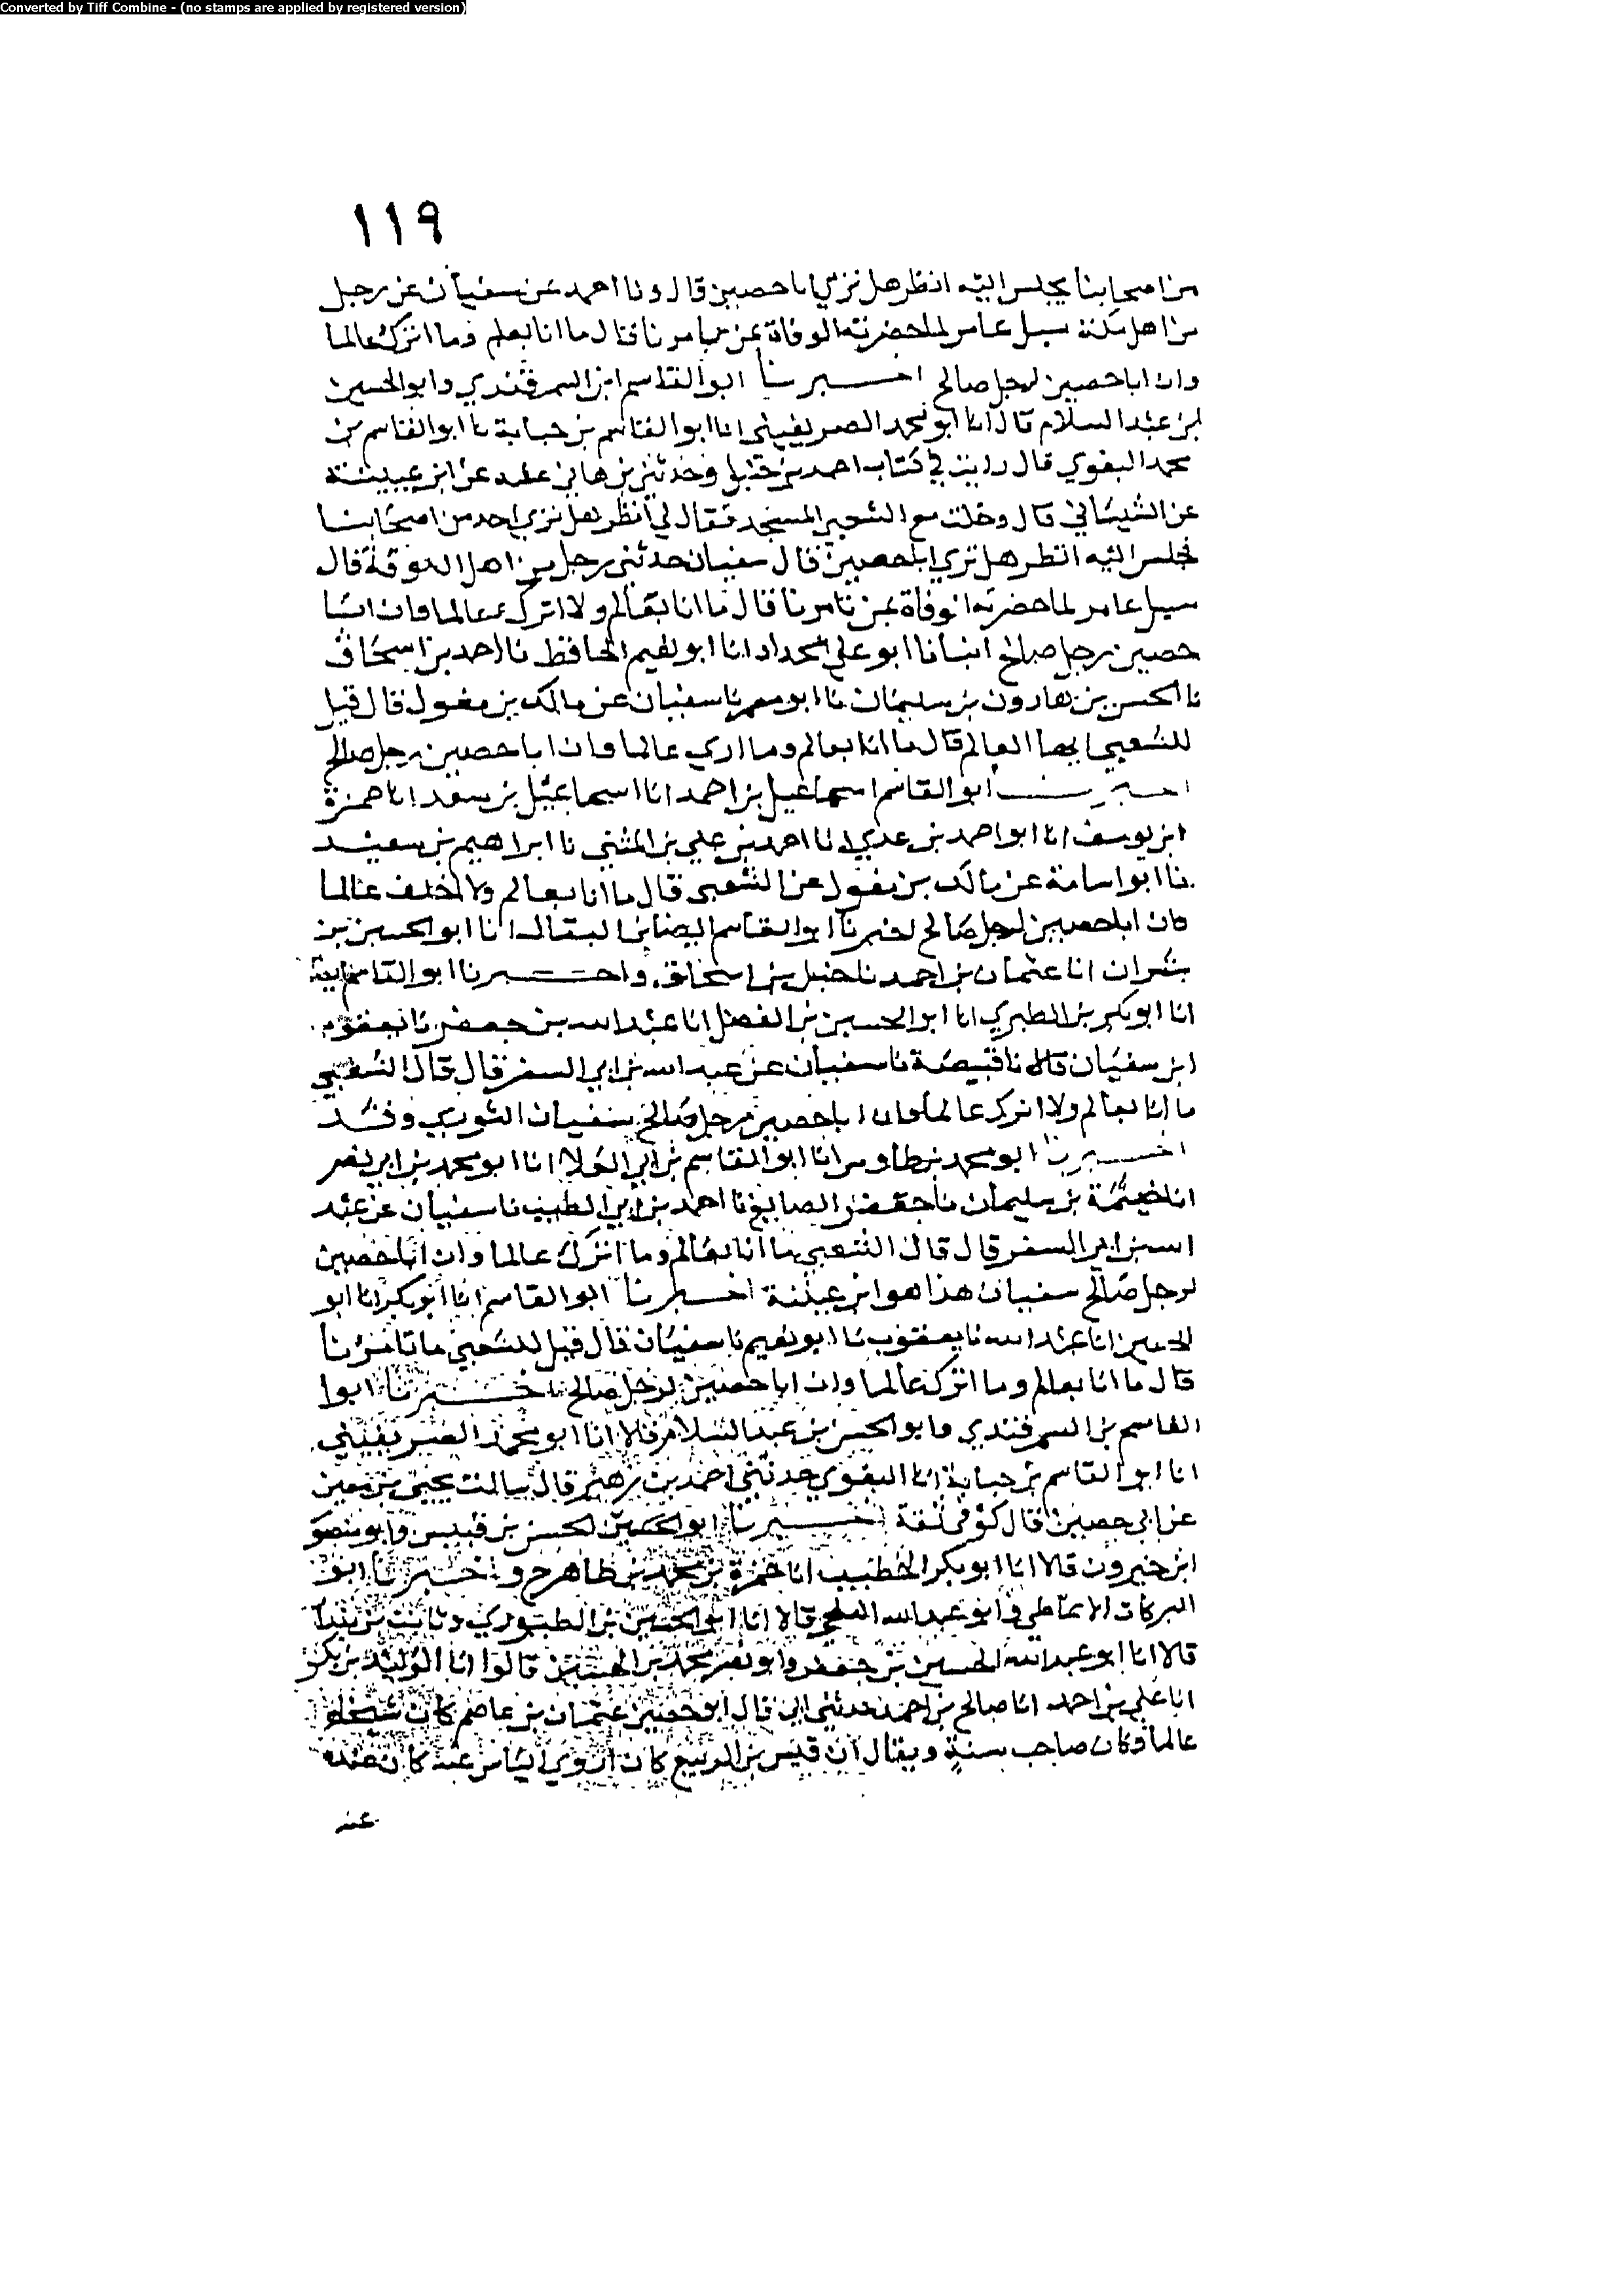 Converted by Tiff Combine - (no stamps are applied by registered version)
١١٩
من اصحابنا يجلس اليه انظر هل نرى ابا حصين قال ونا احمد عن سفيان عن رجل
من اهل سيل عامر لما حضرته الوفاة بمن تامرنا فقال ما انا بعلم وما اترك عالما
وان ابا حصين لرجل صالح اخبرنا ابو القاسم ابن السمرقندي وابو الحسين
ابن عبد السلام قالا انا ابو محمد الصريفيني انا ابو القاسم بن حبابة نا ابو القاسم بن
محمد البغوي قال رايت في كتاب احمد بن حنبل وحدثني بن هاني عنه عن ابن عيينة
عن الشيباني قال دخلت مع الشعبي المسجد فقال لي انظر هل نرى احد من اصحابنا
نجلس اليه انظر هل ترى ابا حصين قال سفيان حدثني رجل من اهل الكوفة قال
سيل عامر لما حضرته الوفاة بمن تامرنا قال ما انا بعالم ولا اترك عالما وان ابا
حصين رجل صالح انبانا ابو علي الحداد انا ابو نعيم الحافظ نا احمد بن اسحاق
نا الحسن بن هارون بن سليمان نا ابو معمر نا سفيان عن مالك بن مغول قال قيل
للشعبي ايها العالم قال ما انا بعالم وما ارى عالما وان ابا حصين رجل صالح
اخبرنا ابو القاسم اسماعيل بن احمد انا اسماعيل بن سعد انا حمزة
ابن يوسف انا ابو احمد بن عدي انا احمد بن علي بن المثنى نا ابراهيم بن سعيد
نا ابو اسامة عن مالك بن مغول عن الشعبي قال ما انا بعالم ولا اخلف عالما
وان ابا حصين لرجل صالح اخبرنا ابو القاسم ايضا ابن البقال انا ابو الحسين بن
بشران انا عثمان بن احمد نا حنبل بن اسحاق واخبرنا ابو القاسم ايضا
انا ابو بكر بن الطبري انا ابو الحسين بن الفضل انا عبد الله بن جعفر نا يعقوب
ابن سفيان قالا نا قبيصة نا سفيان عن عبد الله بن ابي السفر قال قال الشعبي
ما انا بعالم ولا اترك عالما وان ابا حصين رجل صالح سفيان الثوري وقد
اخبرنا ابو محمد بن طاوس انا ابو القاسم بن ابي العلا انا ابو محمد بن ابي نصر
انا خيثمة بن سليمان نا جعفر الصايغ نا احمد بن ابي الطيب نا سفيان عن عبد
الله بن ابي السفر قال قال الشعبي ما انا بعالم وما اترك عالما وان ابا حصين
لرجل صالح سفيان هذا هو ابن عيينة اخبرنا ابو القاسم انا ابو بكر انا ابو
الحسين انا عبد الله نا يعقوب نا ابو نعيم نا سفيان قال قيل للشعبي ما تامرنا
قال ما انا بعالم وما اترك عالما وان ابا حصين لرجل صالح اخبرنا ابوا
القاسم بن السمرقندي وابو الحسن بن عبد السلام قالا انا ابو محمد الصريفيني
انا ابو القاسم بن حبابة انا البغوي حدثني احمد بن زهير قال سالت يحيى بن معين
عن ابي حصين قال كوفي ثقة اخبرنا ابو الحسن بن قبيس وابو منصور
ابن خيرون قالا انا ابو بكر الخطيب انا حمزة بن محمد بن طاهر ح واخبرنا ابو
البركات الانماطي وابو عبد الله البلخي قالا انا ابو الحسين بن الطيوري وثابت بن بندار
قالا انا ابو عبد الله الحسين بن جعفر وابو نصر محمد بن الحسن قالوا انا الوليد بن بكر
انا علي بن احمد انا صالح بن احمد حدثني ابي قال ابو حصين عثمان بن عاصم كان شيخا
عالما وكان صاحب سنة ويقال ان قيس بن الربيع كان اروى الناس عنه كان عنده
عنه